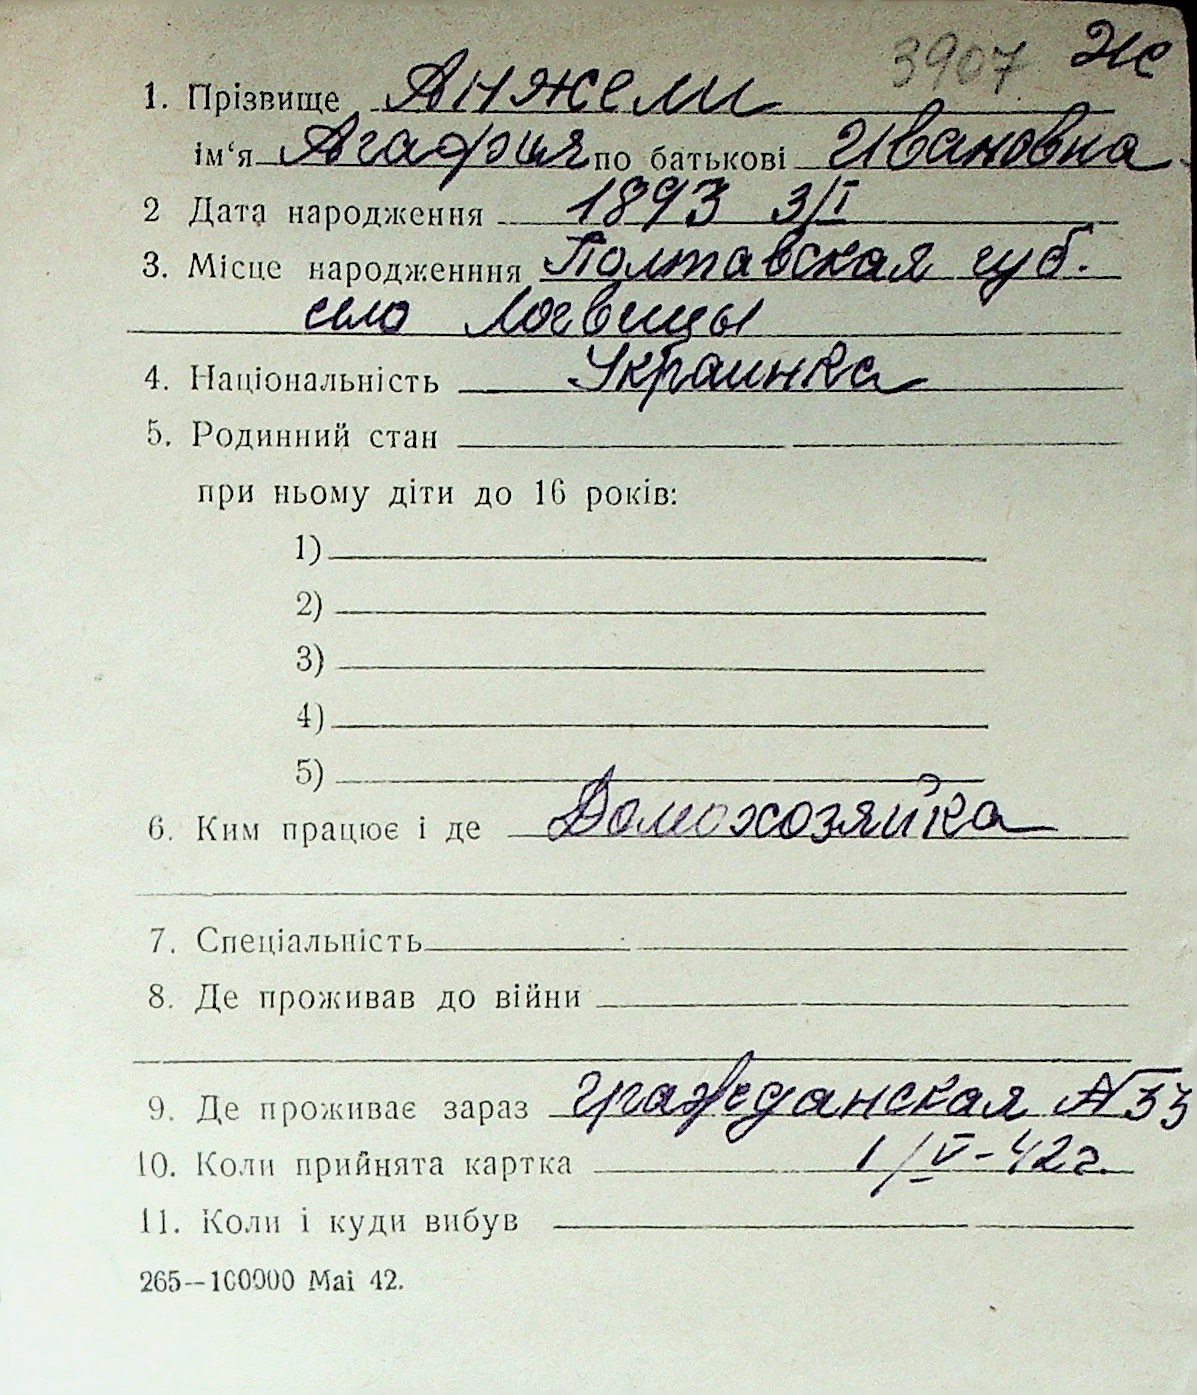 3907 Ж
1. Прізвище Анжели
ім'я Агафия по батькові Ивановна
2 Дата народження 1893 3/I
3. Місце народженння Полтавская губ.
село
4. Національність Украинка
5. Родинний стан
при ньому діти до 16 років:
1)
2)
3)
4)
5)
6. Ким працює і де Домохозяйка
7. Спеціальність
8. Де проживав до війни
9. Де проживає зараз Гражданская № 33
10. Коли прийнята картка 1/V-42г.
11. Коли і куди вибув
265—100000 Mai 42.